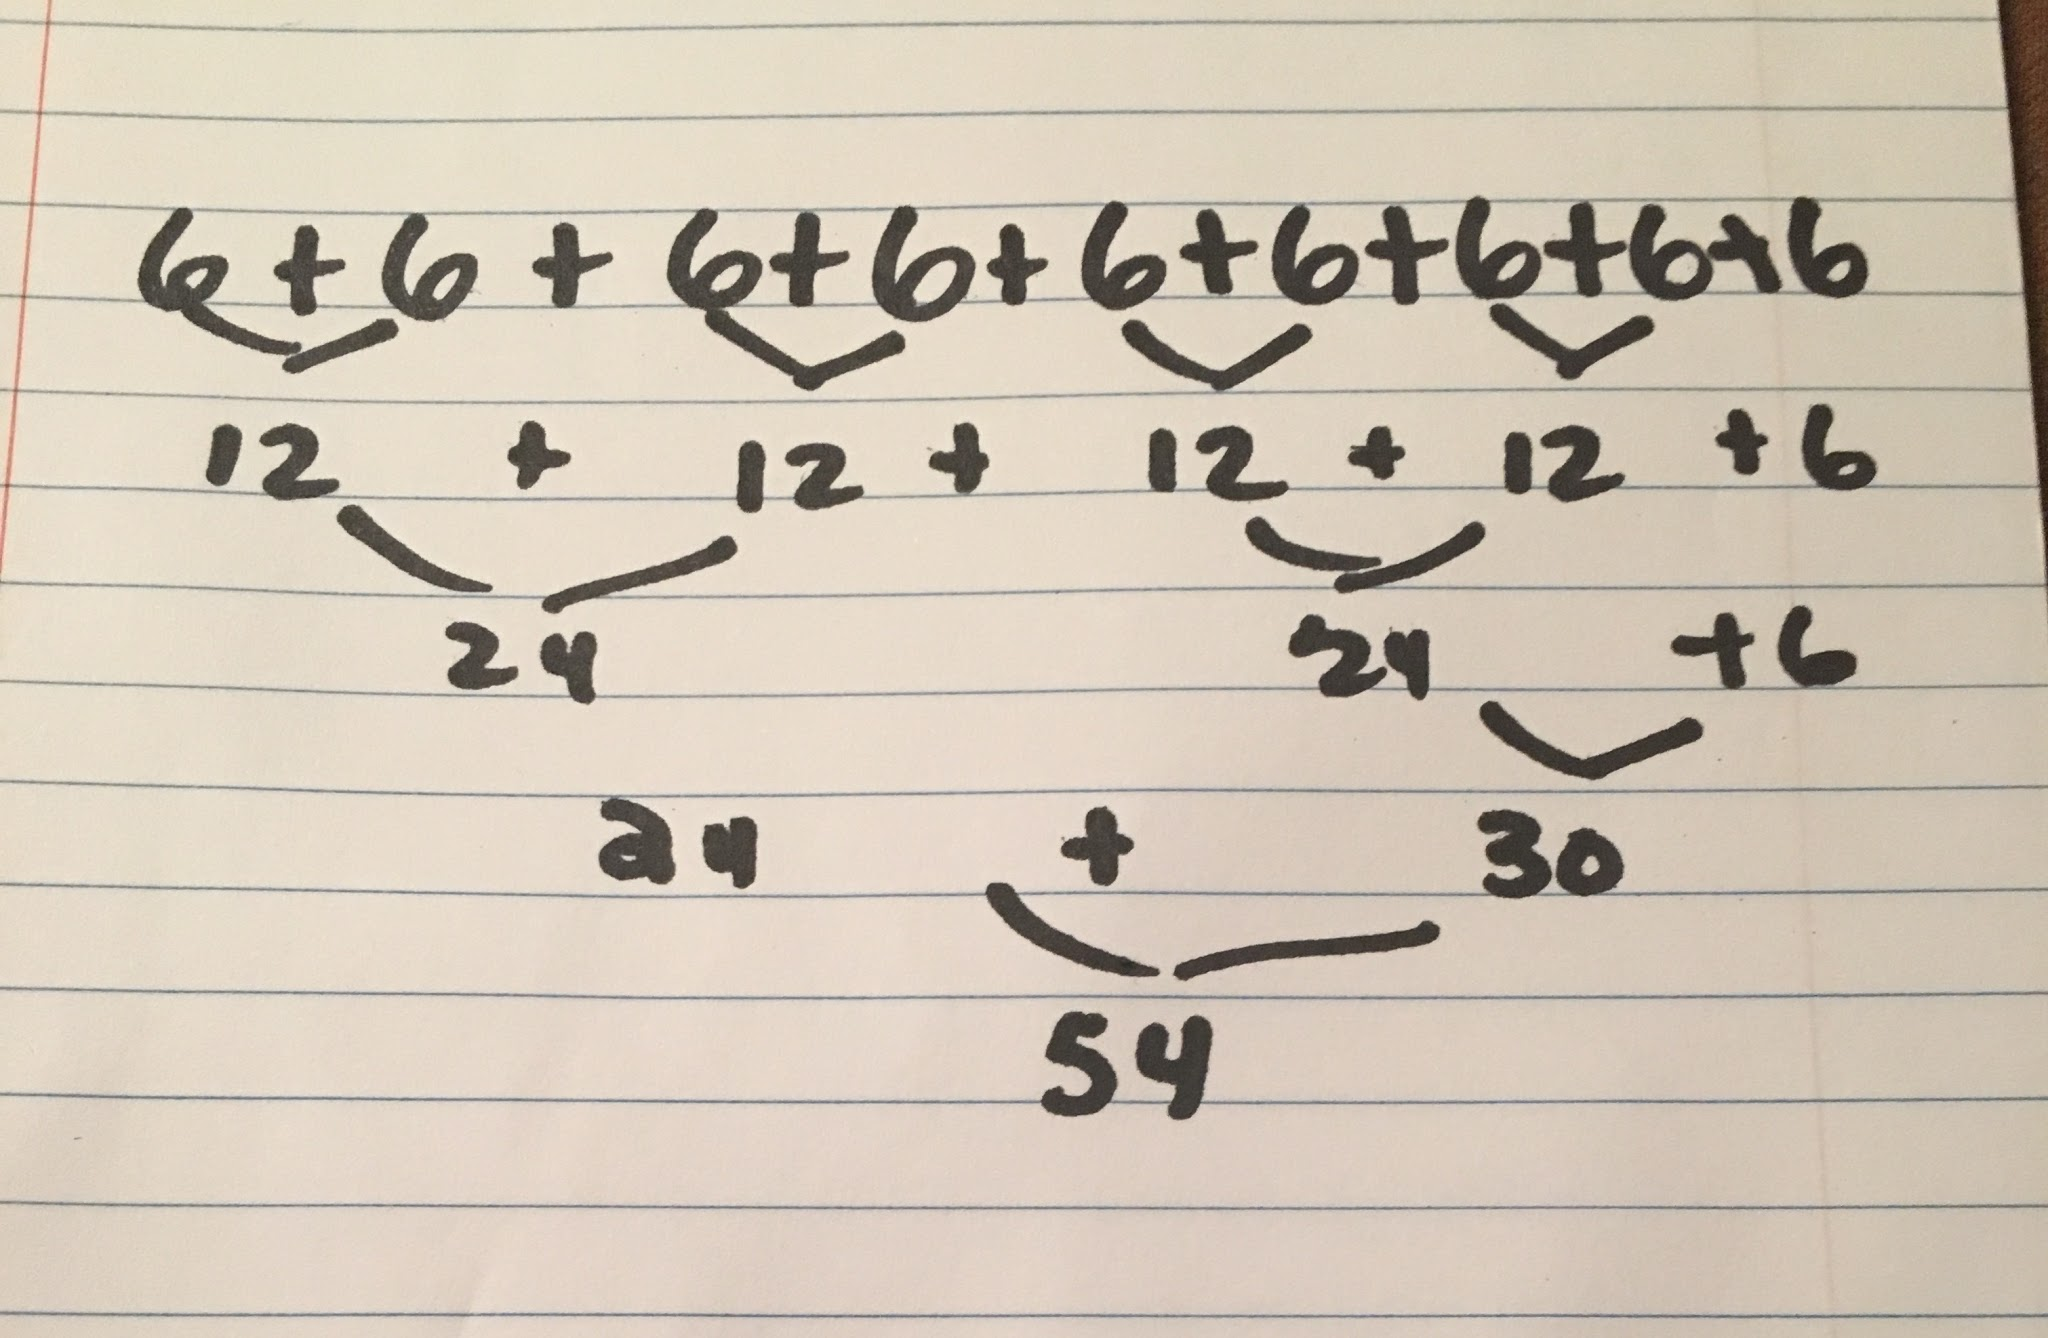 6 + 6 + 6 + 6 + 6 + 6 + 6 + 6 + 6
12 + 12 + 12 + 12 + 6
24 24 + 6
24 + 30
54